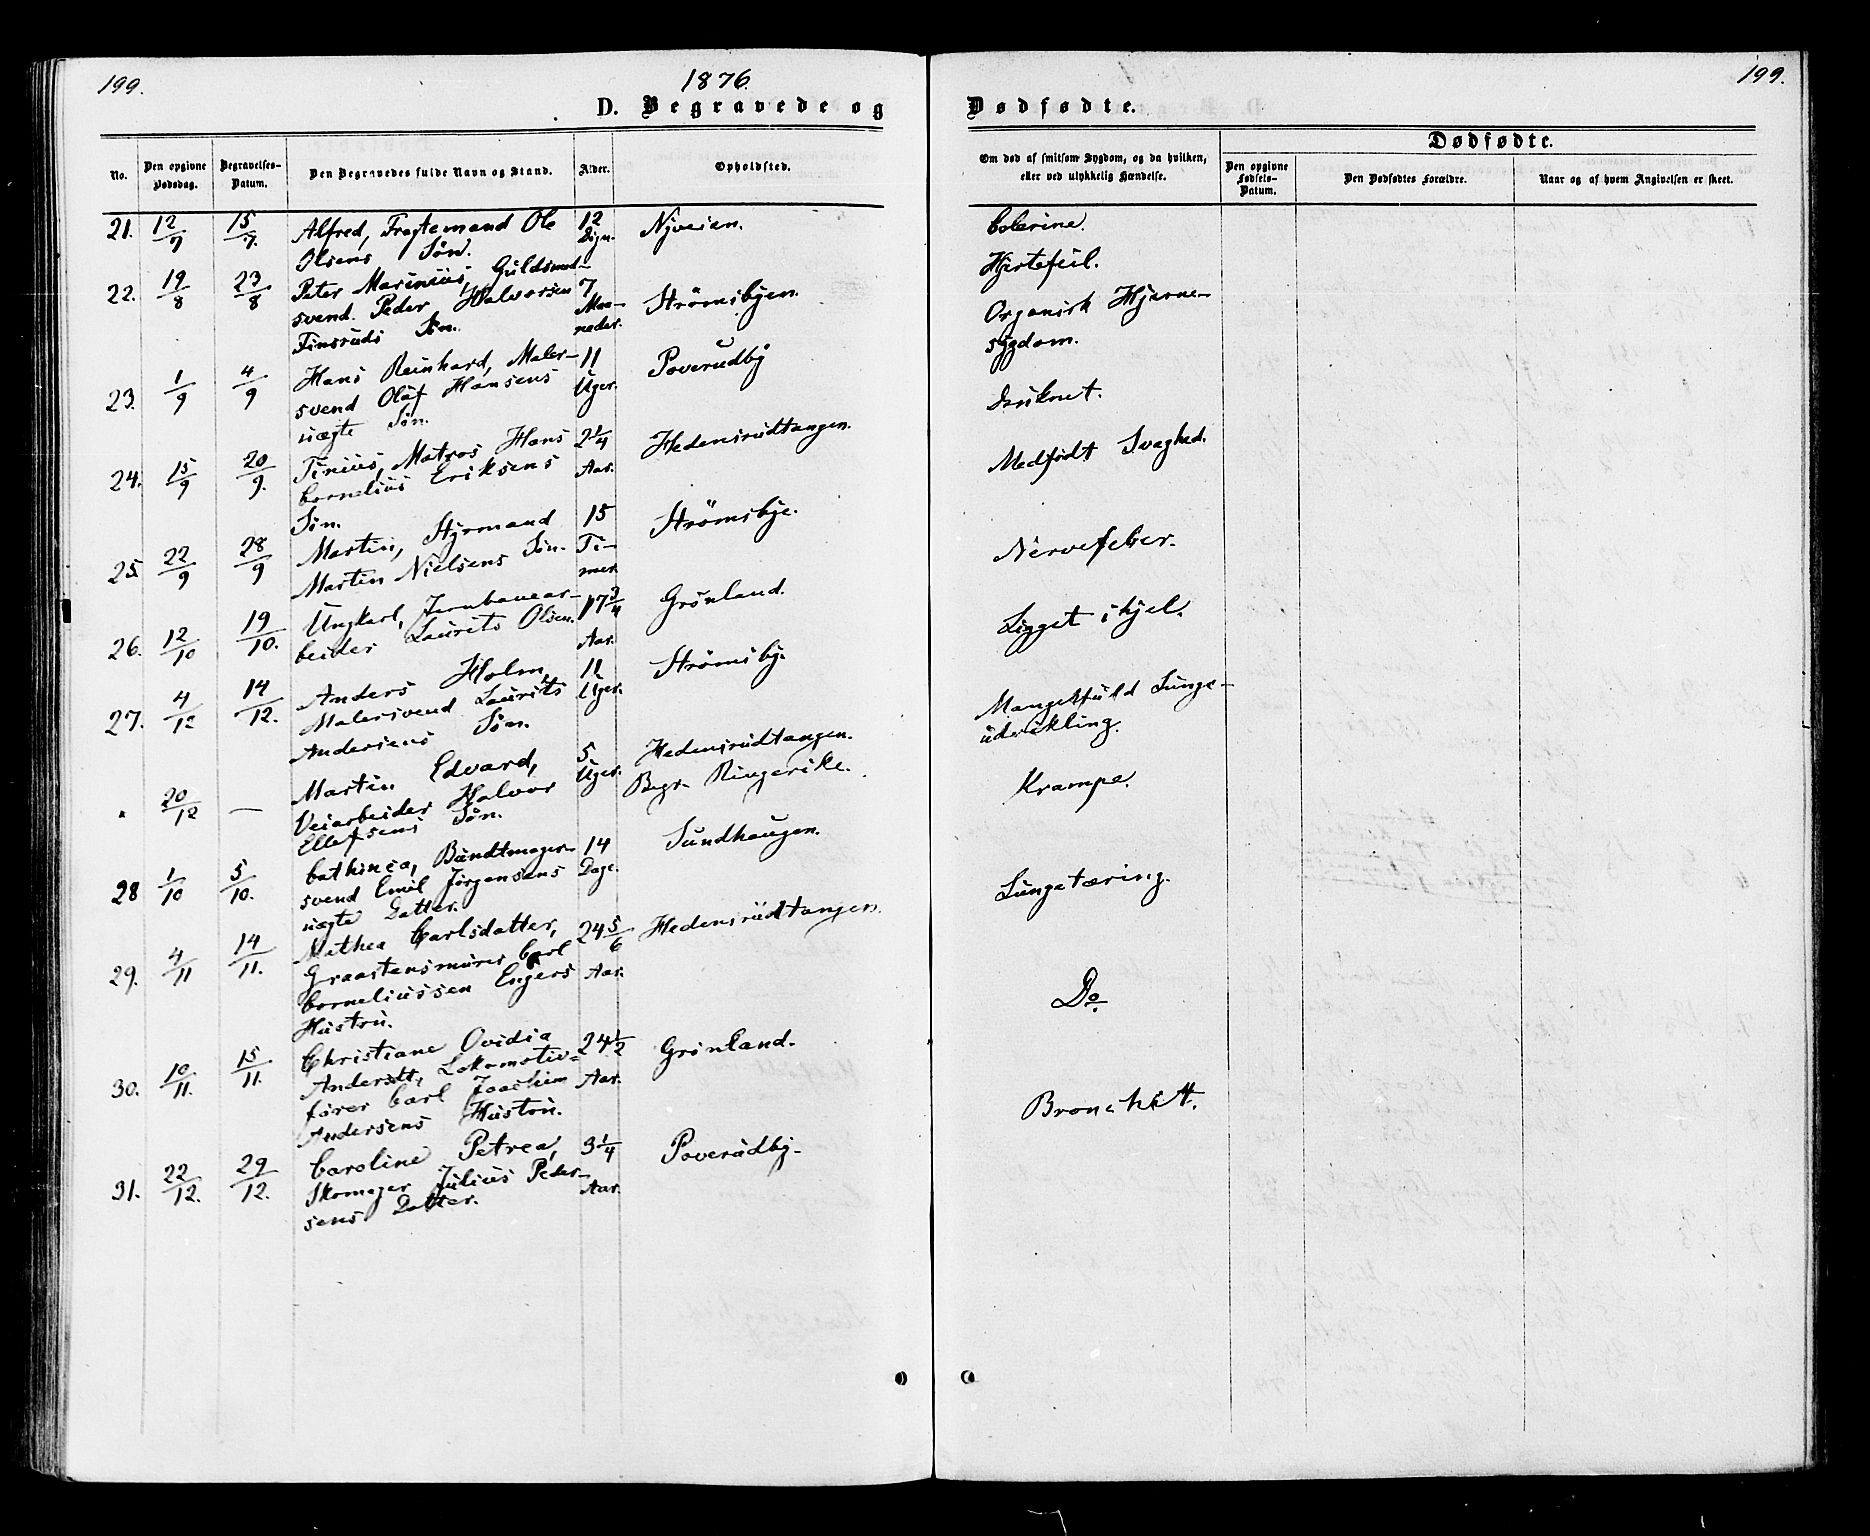 199.
1876.
D. Begravede og
No.
Den opgivne Dødsdag.
Begravelses-Datum.
Den Begravedes fulde Navn og Stand.
Alder.
Opholdsted.
21. 12/7 15/7. Alfred, Fragtemand Ole 12 Nyveien.
Olsens Søn. Dgn.
22. 19/8 23/8 Peter Marinius, Guldsmed- 7 Strömsbyen.
svend Peder Halvorsen Maa-
Finsruds Søn. neder.
23. 1/9 4/9 Hans Reinhard, Maler- 11 Poverudby
svend Olaf Hansens Uger.
uægte Søn.
24. 15/9 20/9. Tinius, Matros Hans 2 1/4 Hedensrudtangen.
Cornelius Eriksens Aar.
Søn.
25. 22/9 28/9 Martin, Styrmand 15 Strömsbye.
Martin Nielsens Søn. Ti-
mer
26. 12/10 19/10. Ungkarl, Jernbanear- 17 3/4 Grönland.
beider Laurits Olsen. Aar.
27. 4/12 14/12. Anders Holm, 11 Strömsby.
Malersvend Laurits Uger.
Andersens Søn.
" 20/12 — Martin Edvard, 5 Hedensrudtangen.
Veiarbeider Halvor Uger. Begr. Ringerike.
Ellefsens Søn.
28 1/10 5/10. Cathinca, Bundtmager- 14 Sundhaugen.
svend Emil Jörgensens Dage.
uægte Datter.
29. 4/11 14/11. Mathea Carlsdatter, 24 5/6 Hedensrudtangen.
Graastensmurer Carl
Corneliussen Engers Aar.
Hustru.
30. 10/11. 15/11. Christiane Ovidia 24 1/2 Grönland.
Andersdt, Lokomotiv-
fører Carl Joachim Aar.
Andersens Hustru.
31. 22/12. 29/12. Caroline Petrea, 3 1/4 Poverudby.
Skomager Julius Peder- Aar.
sens Datter.
199.
Dødfødte.
Om død af smitsom Sygdom, og da hvilken, eller ved ulykkelig Hændelse.
Dødfødte.
Den opgivne Fødsels-Datum.
Den Dødfødtes Forældre.
Naar og af hvem Angivelsen er skeet.
Colerine.
Hjertefeil.
Organisk Hjerne-
sygdom.
Druknet.
Medfødt Svaghed.
Nervefeber.
Ligget ihjel.
Mangelfuld Lunge-
udvikling.
Krampe.
Lungetæring.
Do.
Bronchit.